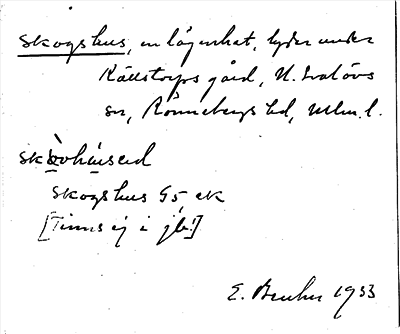 Skogshus, en lägenhet, lyder under
Källstorps gård, N. Svalövs
sn, Rönnebergs hd, Mlm. l.
skòvhúsed
Skogshus G5, ek
[Finns ej i jb!]
E. 1933